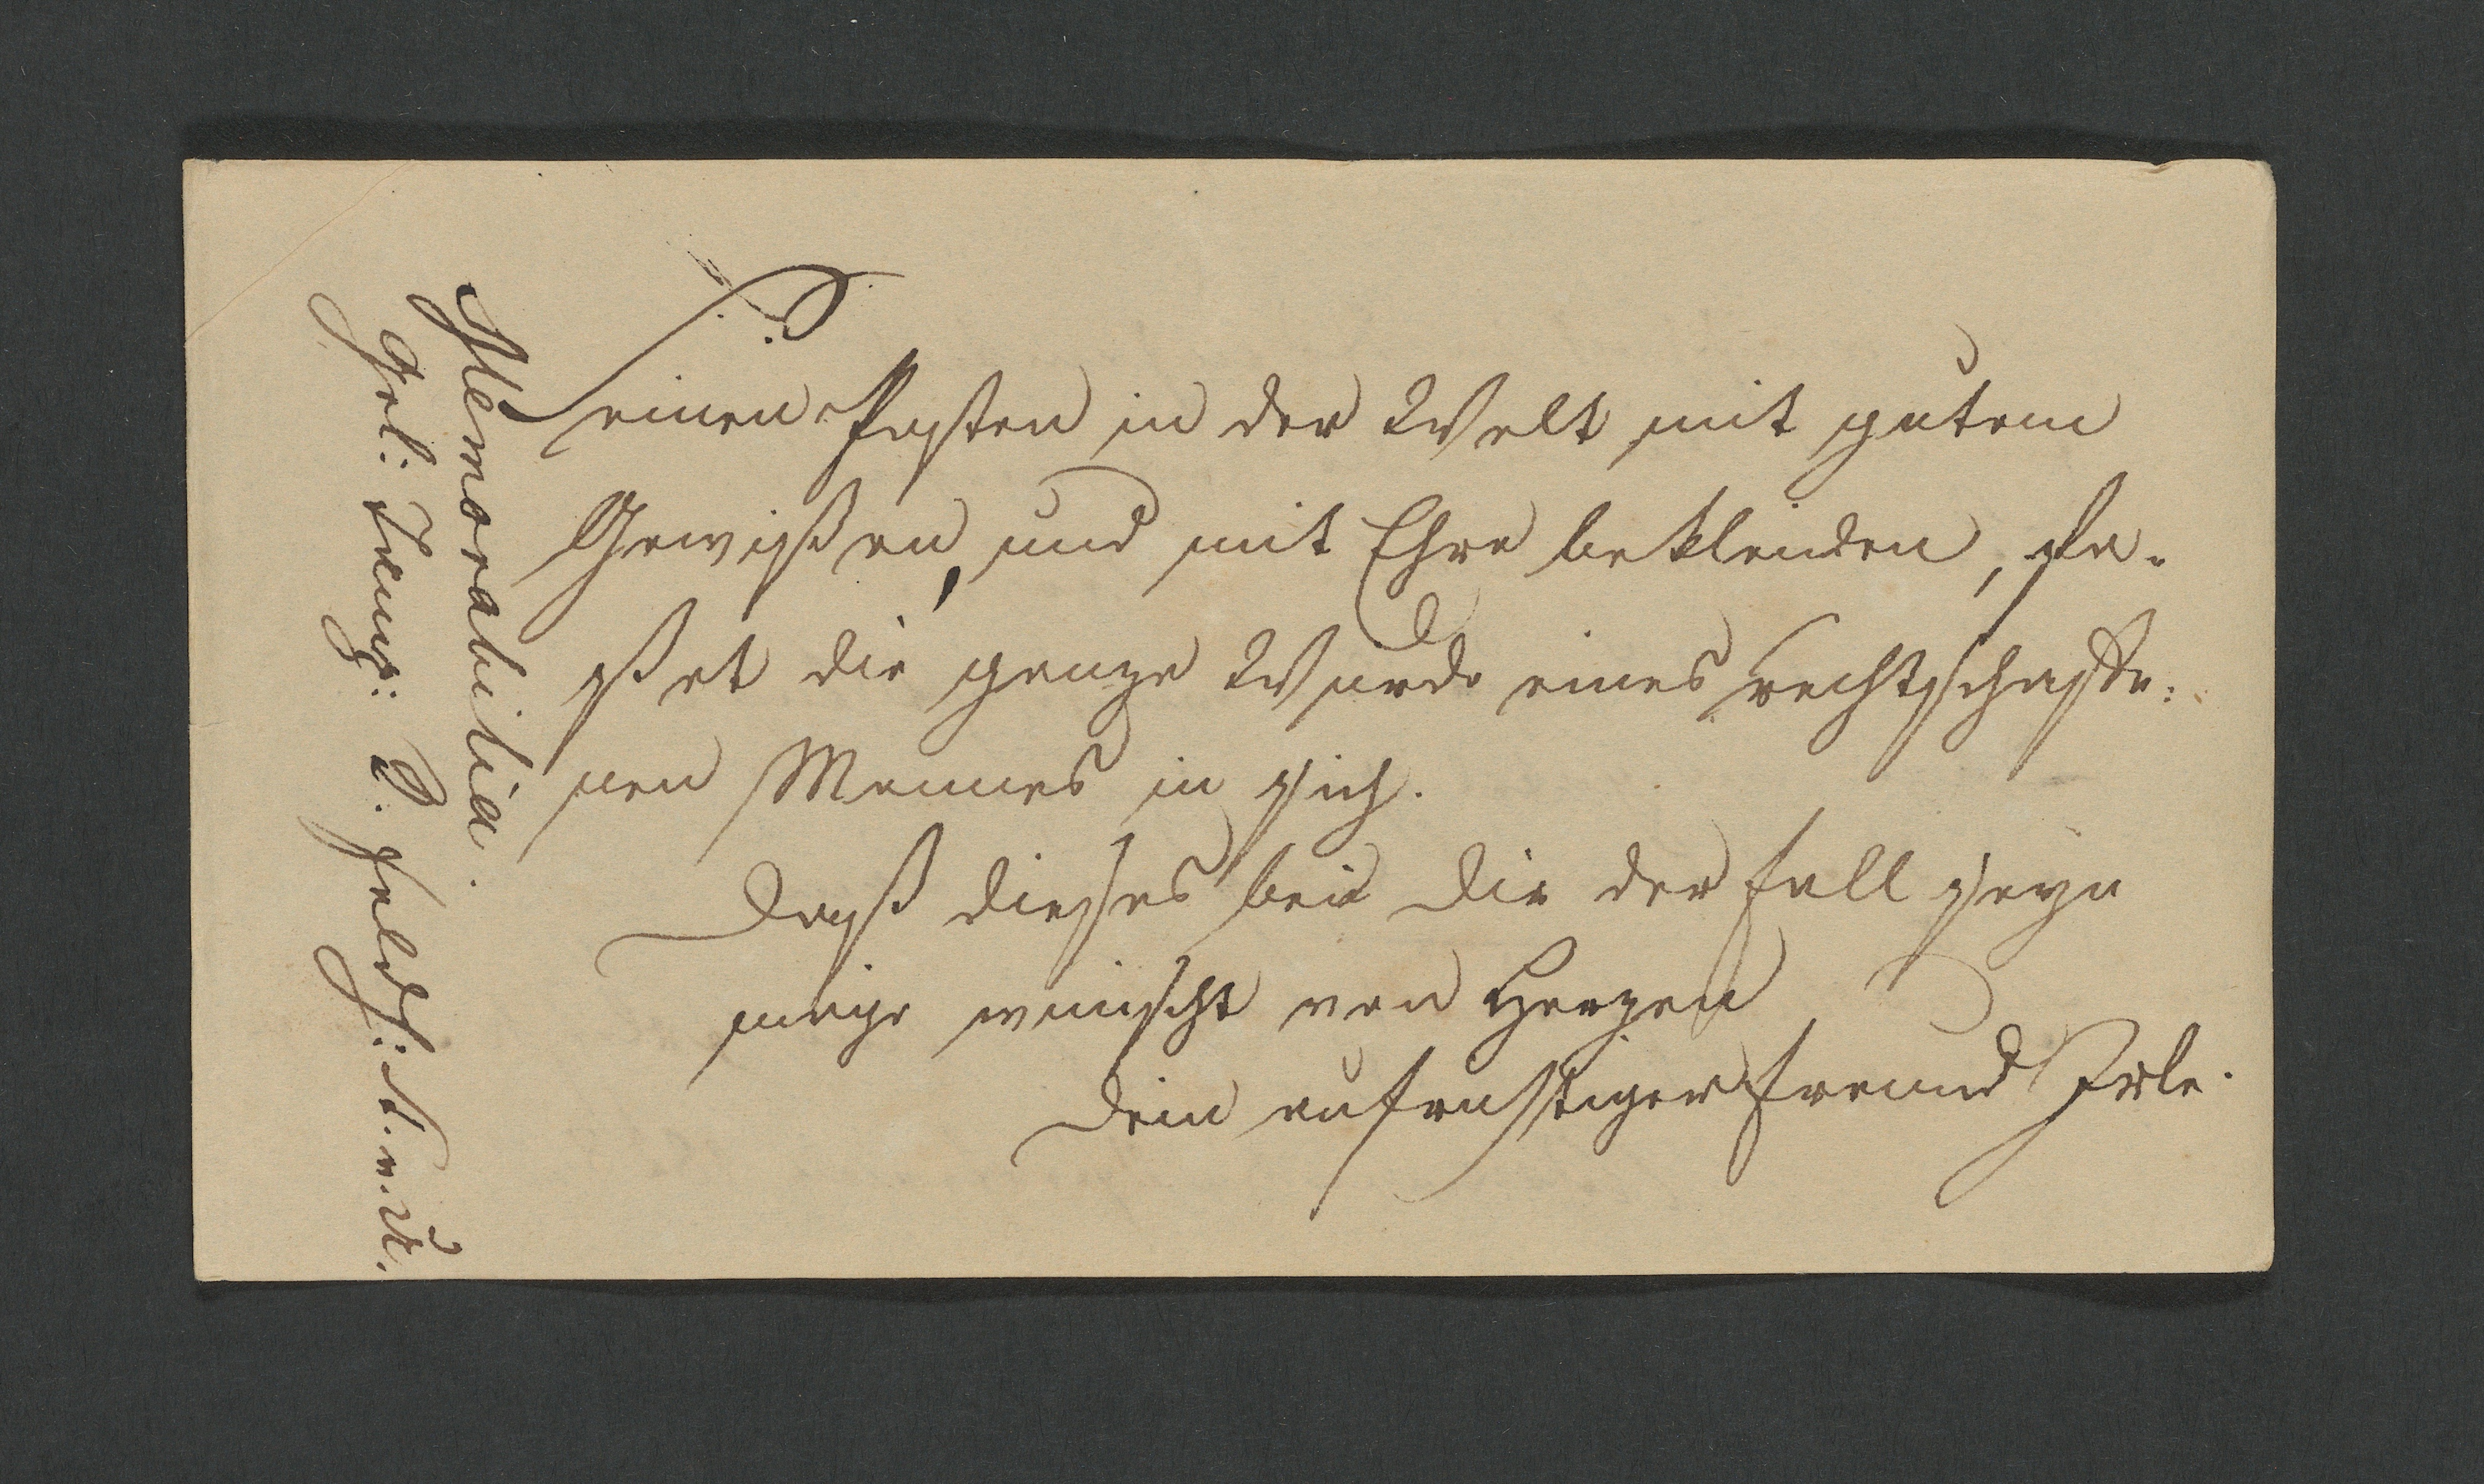 Seinen Posten in der Welt mit gutem
Gewißen, und mit Ehre bekleiden, fa-
ßet die ganze Wurde eines rechtschaffe=
nen Mannes in sich.
Daß dieses bei Dir der Fall seyn
möge wünscht von Herzen
Dein aufrichtiger Freund Irle.
Memorabilia.